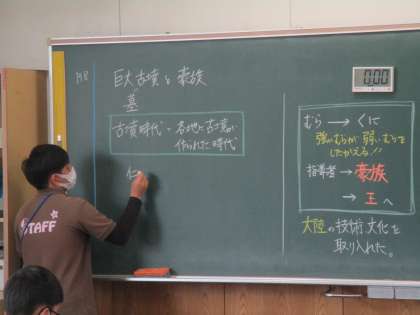 巨大古墳と豪族
墓
古墳時代・各地に古墳が
作られた時代
むら → くに
強いむらが弱いむらを
したがえる!!
指導者 → 豪族
→ 王へ
大陸の技術文化を
取り入れた。
0:00
STAFF